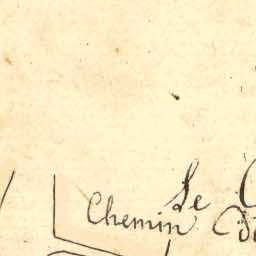 Le
Chemin